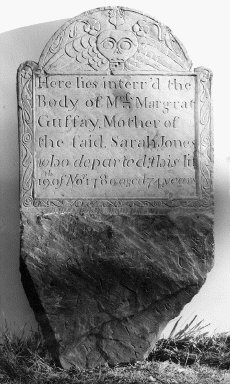 Here lies interr'd the
Body of Mrs. Margrat
Guffay, Mother of
the said, Sarah Jones
who departed this li
19th of Nor. 1780 aged 74 years